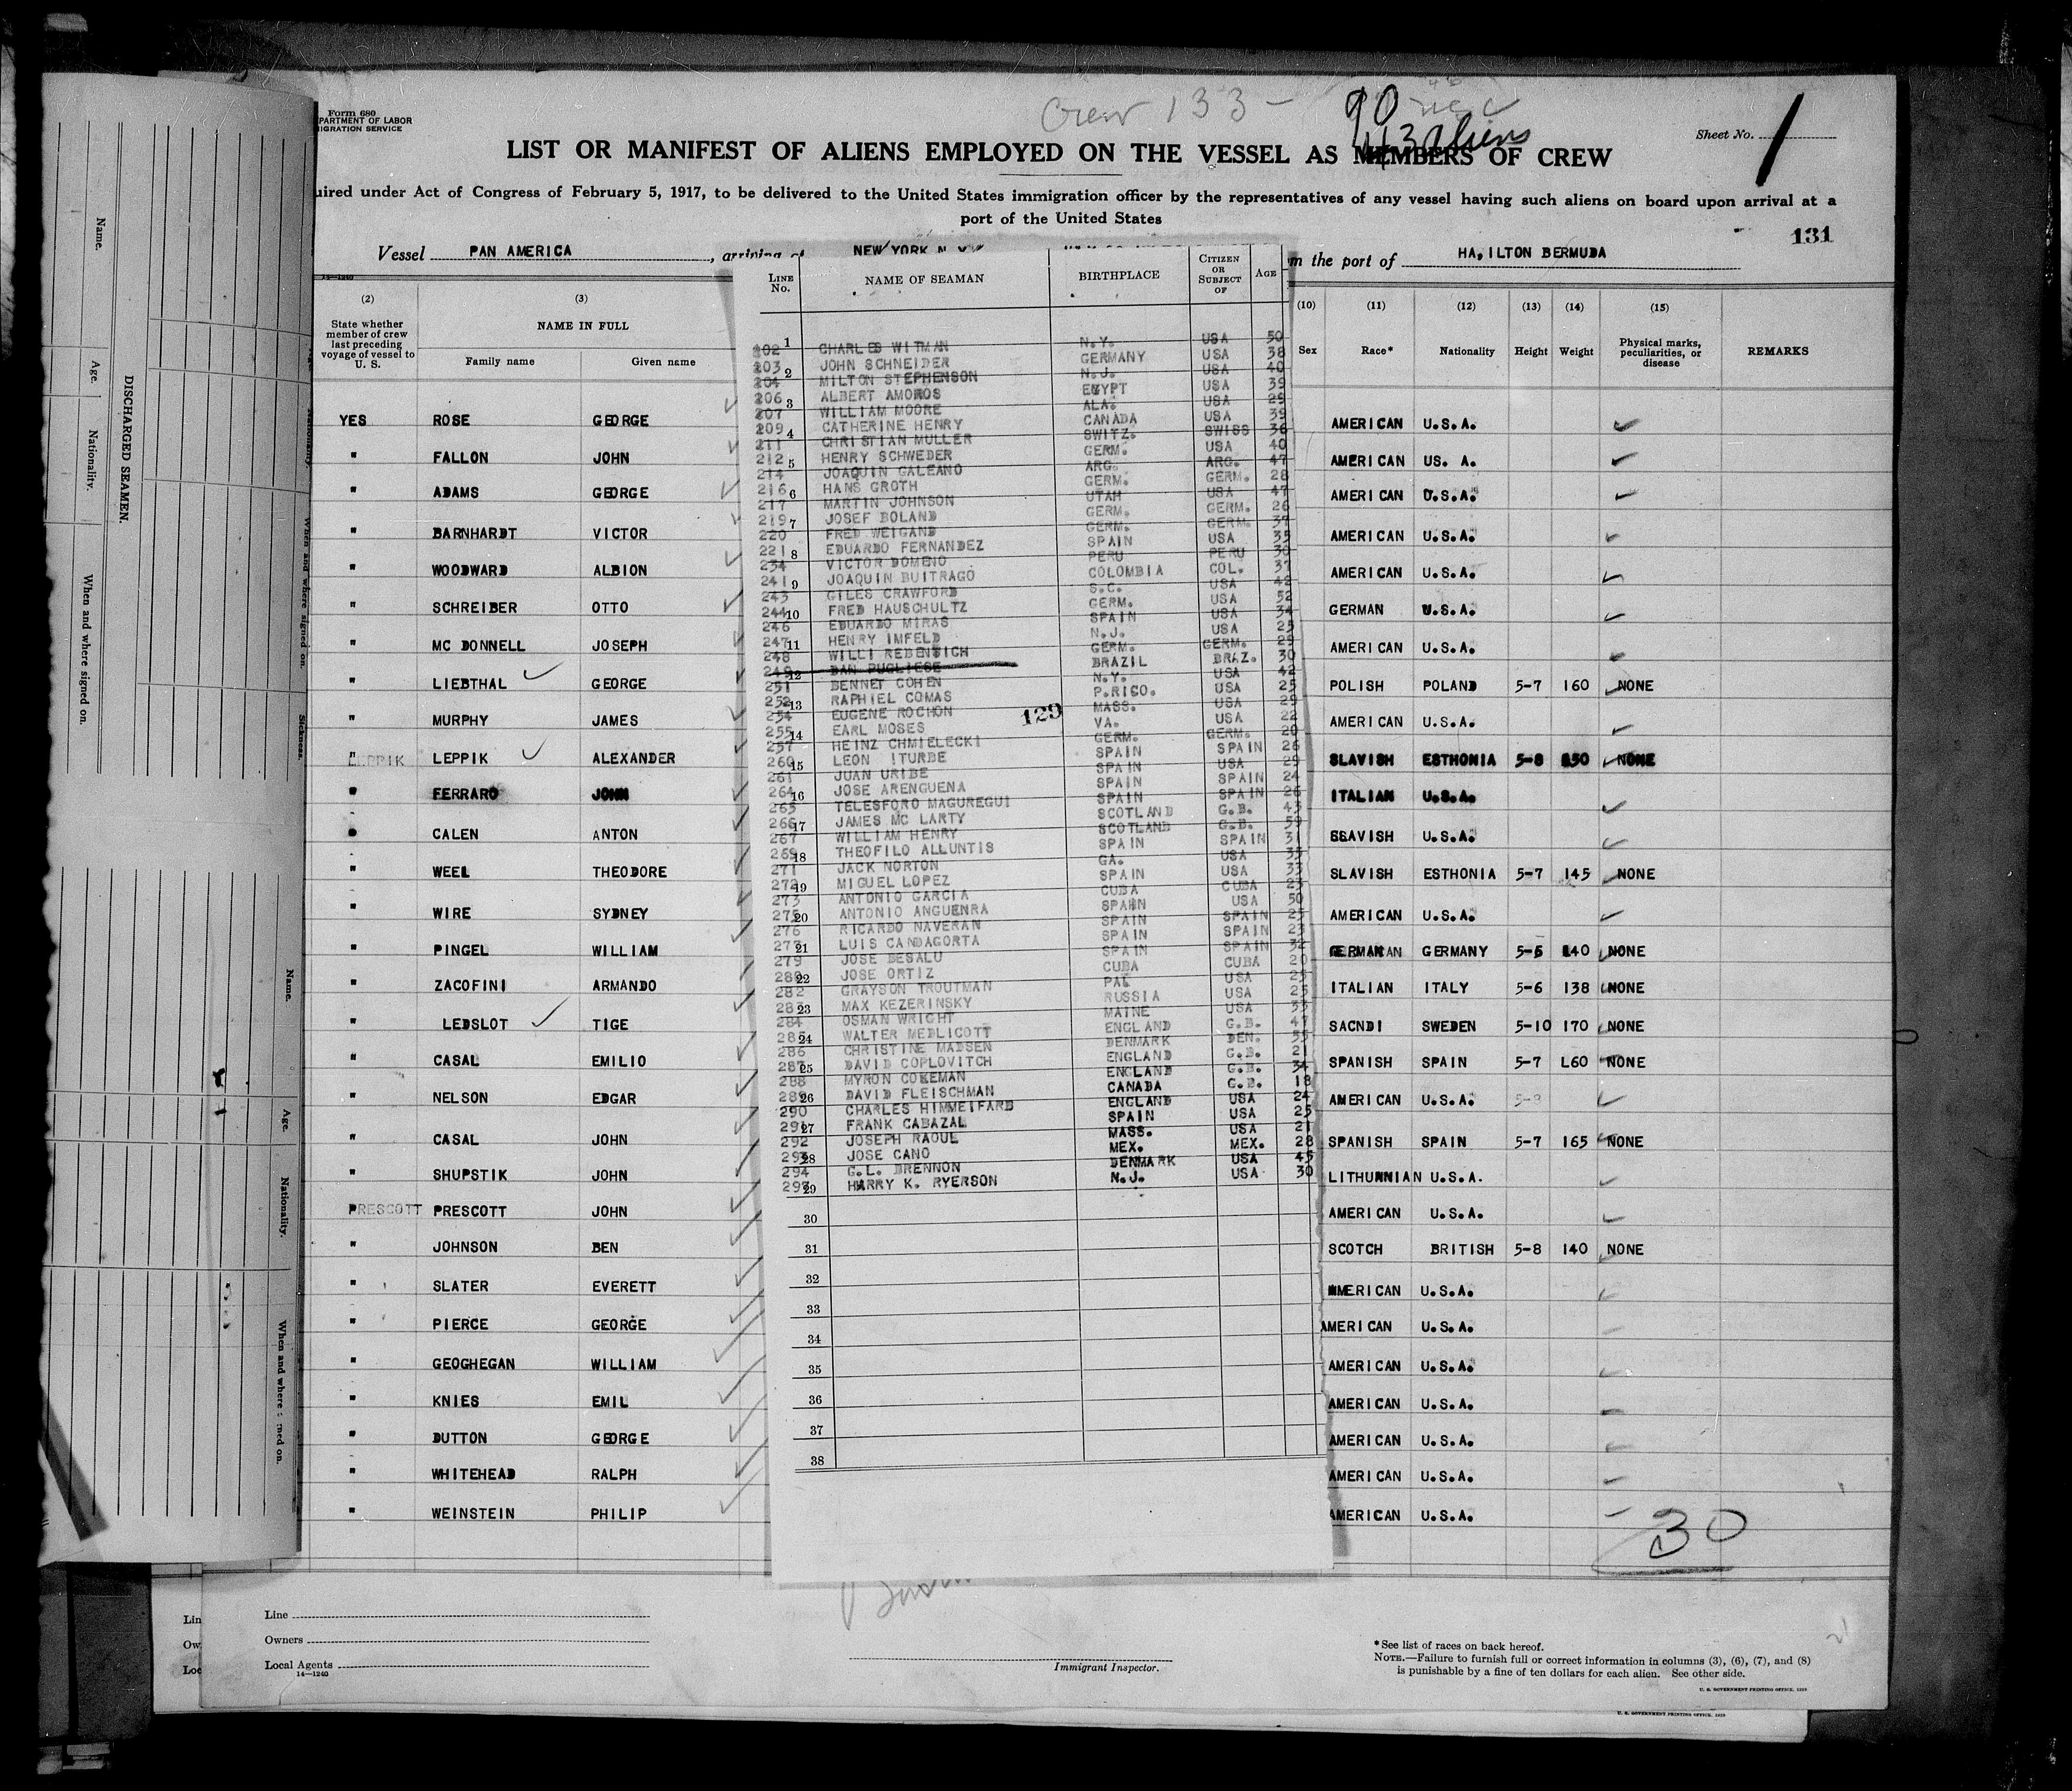 Crew 133 - 90
43 aliens
Form 680
PARTMENT OF LABOR
IGRATION SERVICE
Sheet No. 1
LIST OR MANIFEST OF ALIENS EMPLOYED ON THE VESSEL AS MEMBERS OF CREW
uired under Act of Congress of February 5, 1917, to be delivered to the United States immigration officer by the representatives of any vessel having such aliens on board upon arrival at a
port of the United States
131
Vessel PAN AMERICA , arriving at NEW YORK N.Y. m the port of HA,ILTON BERMUDA
14—1240
(2) (3)
State whether member of crew last preceding voyage of vessel to U. S.
NAME IN FULL
Family name Given name
YES ROSE GEORGE
" FALLON JOHN
" ADAMS GEORGE
" BARNHARDT VICTOR
" WOODWARD ALBION
" SCHREIBER OTTO
" MC DONNELL JOSEPH
" LIEBTHAL GEORGE
" MURPHY JAMES
" LEPPIK LEPPIK ALEXANDER
" FERRARO JOHN
" CALEN ANTON
" WEEL THEODORE
" WIRE SYDNEY
" PINGEL WILLIAM
" ZACOFINI ARMANDO
" LEDSLOT TIGE
" CASAL EMILIO
" NELSON EDGAR
" CASAL JOHN
" SHUPSTIK JOHN
PRESCOTT PRESCOTT JOHN
" JOHNSON BEN
" SLATER EVERETT
" PIERCE GEORGE
" GEOGHEGAN WILLIAM
" KNIES EMIL
" DUTTON GEORGE
" WHITEHEAD RALPH
" WEINSTEIN PHILIP
LINE No. NAME OF SEAMAN BIRTHPLACE CITIZEN OR SUBJECT OF AGE
1
202 CHARLES WITMAN N.Y. USA 50
203 JOHN SCHNEIDER GERMANY USA 38
2
204 MILTON STEPHENSON N.J. USA 40
206 ALBERT AMOROS EGYPT USA 39
3
207 WILLIAM MOORE ALA. USA 29
209 CATHERINE HENRY CANADA USA 39
4
211 CHRISTIAN MULLER SWITZ. SWISS 36
212 HENRY SCHWEDER GERM. USA 40
5
214 JOAQUIN GALEANO ARG. ARG. 47
216 HANS GROTH GERM. GERM. 28
6
217 MARTIN JOHNSON UTAH USA 47
219 JOSEF BOLAND GERM. GERM. 26
7
220 FRED WEIGAND GERM. GERM. 37
221 EDUARDO FERNANDEZ SPAIN USA 35
8
234 VICTOR DOMENO PERU PERU 30
241 JOAQUIN BUITRAGO COLOMBIA COL. 37
9
243 GILES CRAWFORD S.C. USA 42
244 FRED HAUSCHULTZ GERM. USA 52
10
246 EDUARDO MIRAS SPAIN USA 34
247 HENRY IMFELD N.J. USA 25
11
248 WILLI REBENSICH GERM. GERM. 29
249 DAN PUGLIESE BRAZIL BRAZ. 30
12
251 BENNET COHEN N.Y. USA 42
252 RAPHIEL COMAS P.RICO. USA 25
13
254 EUGENE ROCHON MASS. USA 29
129
255 EARL MOSES VA. USA 22
14
257 HEINZ CHMIELECKI GERM. GERM. 20
260 LEON ITURBE SPAIN SPAIN 26
15
261 JUAN URIBE SPAIN USA 29
264 JOSE ARENGUENA SPAIN SPAIN 24
16
265 TELESFORO MAGUREGUI SPAIN SPAIN 26
266 JAMES MC LARTY SCOTLAND G.B. 43
17
267 WILLIAM HENRY SCOTLAND G.B. 59
269 THEOFILO ALLUNTIS SPAIN SPAIN 31
18
271 JACK NORTON GA. USA 35
272 MIGUEL LOPEZ SPAIN USA 33
19
273 ANTONIO GARCIA CUBA CUBA 23
275 ANTONIO ANGUENRA SPAIN USA 50
20
276 RICARDO NAVERAN SPAIN SPAIN 25
277 LUIS CANDAGORTA SPAIN SPAIN 23
21
279 JOSE BESALU SPAIN SPAIN 32
280 JOSE ORTIZ CUBA CUBA 20
22
282 GRAYSON TROUTMAN PA. USA 25
283 MAX KEZERINSKY RUSSIA USA 25
23
284 OSMAN WRIGHT MAINE USA 33
285 WALTER MEDLICOTT ENGLAND G.B. 47
24
286 CHRISTINE MADSEN DENMARK DEN. 35
287 DAVID COPLOVITCH ENGLAND G.B. 21
25
288 MYRON COKEMAN ENGLAND G.B. 34
289 DAVID FLEISCHMAN CANADA G.B. 18
26
290 CHARLES HIMMEIFARB ENGLAND USA 24
291 FRANK CABAZAL SPAIN USA 25
27
292 JOSEPH RAOUL MASS. USA 21
293 JOSE CANO MEX. MEX. 28
28
294 G.L. BRENNON DENMARK USA 45
297 HARRY K. RYERSON N.J. USA 30
29
30
31
32
33
34
35
36
37
38
(10) (11) (12) (13) (14) (15)
Sex Race* Nationality Height Weight Physical marks, peculiarities, or disease REMARKS
AMERICAN U.S.A.
AMERICAN US. A.
AMERICAN U.S.A.
AMERICAN U.S.A.
AMERICAN U.S.A.
GERMAN U.S.A.
AMERICAN U.S.A.
POLISH POLAND 5-7 160 NONE
AMERICAN U.S.A.
SLAVISH ESTHONIA 5-8 150 NONE
ITALIAN U.S.A.
SLAVISH U.S.A.
SLAVISH ESTHONIA 5-7 145 NONE
AMERICAN U.S.A.
GERMAN GERMANY 5-6 140 NONE
ITALIAN ITALY 5-6 138 NONE
SACNDI SWEDEN 5-10 170 NONE
SPANISH SPAIN 5-7 L60 NONE
AMERICAN U.S.A.
SPANISH SPAIN 5-7 165 NONE
LITHUANIAN U.S.A.
AMERICAN U.S.A.
SCOTCH BRITISH 5-8 140 NONE
AMERICAN U.S.A.
AMERICAN U.S.A.
AMERICAN U.S.A.
AMERICAN U.S.A.
AMERICAN U.S.A.
AMERICAN U.S.A.
AMERICAN U.S.A.
30
Name.
Age.
Nationality.
When and where signed on.
DISCHARGED SEAMEN.
Nationality.
When and where signed on.
Sickness.
Name.
Age.
Nationality.
When and where signed on.
Lin
Ow
Loc
Line
Owners
Local Agents
14—1240
Immigrant Inspector.
*See list of races on back hereof.
NOTE.—Failure to furnish full or correct information in columns (3), (6), (7), and (8)
is punishable by a fine of ten dollars for each alien. See other side.
U. S. GOVERNMENT PRINTING OFFICE. 1929
U. S. GOVERNMENT PRINTING OFFICE. 1929